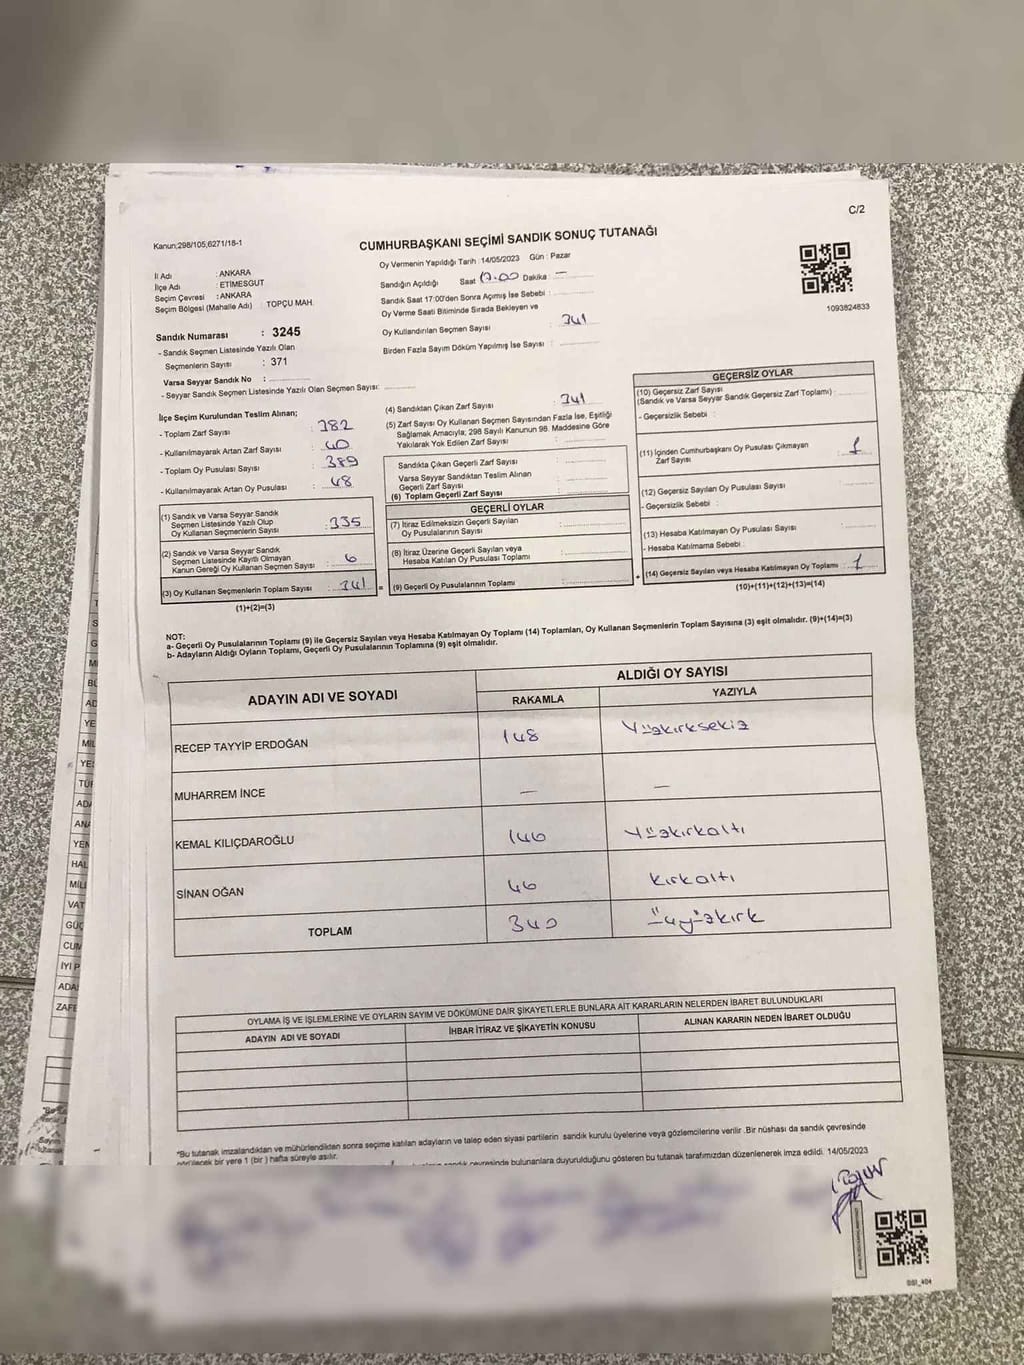 C/2
Kanun;298/105,6271/18-1
CUMHURBAŞKANI SEÇİMİ SANDIK SONUÇ TUTANAĞI
Oy Vermenin Yapıldığı Tarih : 14/05/2023 Gün : Pazar
İl Adı : ANKARA
İlçe Adı : ETİMESGUT
Seçim Çevresi : ANKARA
Seçim Bölgesi (Mahalle Adı) : TOPÇU MAH.
Sandığın Açıldığı Saat 17.00 Dakika : —
Sandık Saat 17:00'den Sonra Açımış İse Sebebi :
Oy Verme Saati Bitiminde Sırada Bekleyen ve
Oy Kullandırılan Seçmen Sayısı : 341
Birden Fazla Sayım Döküm Yapılmış İse Sayısı :
1093824833
Sandık Numarası : 3245
- Sandık Seçmen Listesinde Yazılı Olan
Seçmenlerin Sayısı : 371
Varsa Seyyar Sandık No :
- Seyyar Sandık Seçmen Listesinde Yazılı Olan Seçmen Sayısı:
İlçe Seçim Kurulundan Teslim Alınan;
- Toplam Zarf Sayısı : 382
- Kullanılmayarak Artan Zarf Sayısı : 40
- Toplam Oy Pusulası Sayısı : 389
- Kullanılmayarak Artan Oy Pusulası : 48
(1) Sandık ve Varsa Seyyar Sandık
Seçmen Listesinde Yazılı Olup
Oy Kullanan Seçmenlerin Sayısı : 335
(2) Sandık ve Varsa Seyyar Sandık
Seçmen Listesinde Kayıtlı Olmayan
Kanun Gereği Oy Kullanan Seçmen Sayısı : 6
(3) Oy Kullanan Seçmenlerin Toplam Sayısı : 341 =
(1)+(2)=(3)
(4) Sandıktan Çıkan Zarf Sayısı : 341
(5) Zarf Sayısı Oy Kullanan Seçmen Sayısından Fazla İse, Eşitliği
Sağlamak Amacıyla; 298 Sayılı Kanunun 98. Maddesine Göre
Yakılarak Yok Edilen Zarf Sayısı :
Sandıkta Çıkan Geçerli Zarf Sayısı :
Varsa Seyyar Sandıktan Teslim Alınan
Geçerli Zarf Sayısı :
(6) Toplam Geçerli Zarf Sayısı :
GEÇERLİ OYLAR
(7) İtiraz Edilmeksizin Geçerli Sayılan
Oy Pusulalarının Sayısı :
(8) İtiraz Üzerine Geçerli Sayılan veya
Hesaba Katılan Oy Pusulası Toplamı :
(9) Geçerli Oy Pusulalarının Toplamı : +
GEÇERSİZ OYLAR
(10) Geçersiz Zarf Sayısı
(Sandık ve Varsa Seyyar Sandık Geçersiz Zarf Toplamı) :
- Geçersizlik Sebebi :
(11) İçinden Cumhurbaşkanı Oy Pusulası Çıkmayan
Zarf Sayısı : 1
(12) Geçersiz Sayılan Oy Pusulası Sayısı :
- Geçersizlik Sebebi :
(13) Hesaba Katılmayan Oy Pusulası Sayısı :
- Hesaba Katılmama Sebebi :
(14) Geçersiz Sayılan veya Hesaba Katılmayan Oy Toplamı : 1
(10)+(11)+(12)+(13)=(14)
NOT:
a- Geçerli Oy Pusulalarının Toplamı (9) ile Geçersiz Sayılan veya Hesaba Katılmayan Oy Toplamı (14) Toplamları, Oy Kullanan Seçmenlerin Toplam Sayısına (3) eşit olmalıdır. (9)+(14)=(3)
b- Adayların Aldığı Oyların Toplamı, Geçerli Oy Pusulalarının Toplamına (9) eşit olmalıdır.
ADAYIN ADI VE SOYADI ALDIĞI OY SAYISI
RAKAMLA YAZIYLA
RECEP TAYYİP ERDOĞAN 148 Yüzkırksekiz
MUHARREM İNCE — —
KEMAL KILIÇDAROĞLU 146 Yüzkırkaltı
SİNAN OĞAN 46 kırkaltı
TOPLAM 340 üçyüzkırk
OYLAMA İŞ VE İŞLEMLERİNE VE OYLARIN SAYIM VE DÖKÜMÜNE DAİR ŞİKAYETLERLE BUNLARA AİT KARARLARIN NELERDEN İBARET BULUNDUKLARI
ADAYIN ADI VE SOYADI İHBAR İTİRAZ VE ŞİKAYETİN KONUSU ALINAN KARARIN NEDEN İBARET OLDUĞU
*Bu tutanak imzalandıktan ve mühürlendikten sonra seçime katılan adayların ve talep eden siyasi partilerin sandık kurulu üyelerine veya gözlemcilerine verilir .Bir nüshası da sandık çevresinde
görülecek bir yere 1 (bir ) hafta süreyle asılır.
sandık çevresinde bulunanlara duyurulduğunu gösteren bu tutanak tarafımızdan düzenlenerek imza edildi. 14/05/2023
YE
MİL
YE
TÜR
ADA
ANA
YEN
HAL
MİLL
VAT
GÜÇ
CUM
İYİ P
ADA
ZAFE